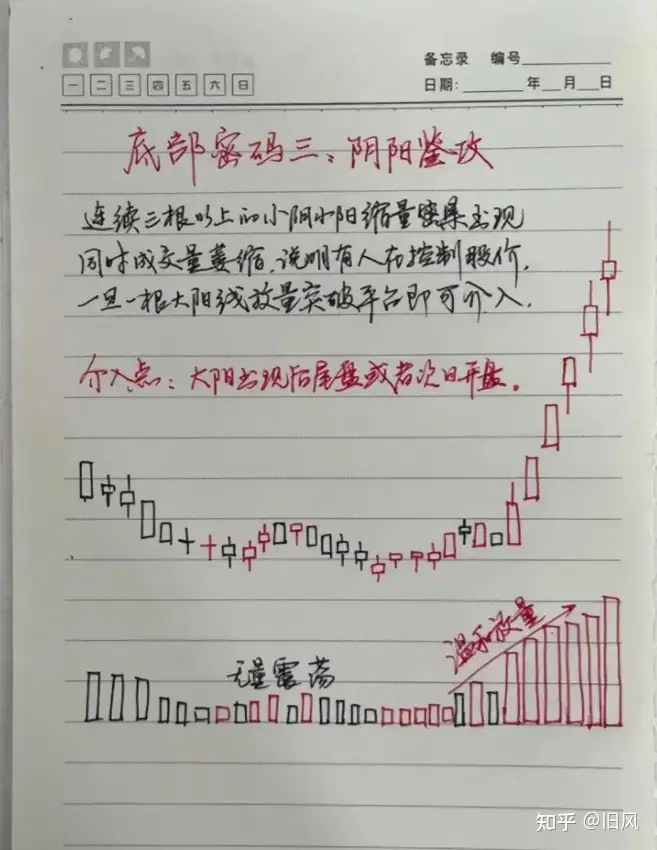 备忘录 编号
一 二 三 四 五 六 日
日期: 年 月 日
底部密码三：阴阳鉴攻
连续三根以上的小阴小阳缩量密集出现
同时成交量萎缩，说明有人在控制股价，
一旦一根大阳线放量突破平台即可介入．
介入点：大阳出现后尾盘或者次日开盘。
温和放量
无量震荡
知乎 @旧风